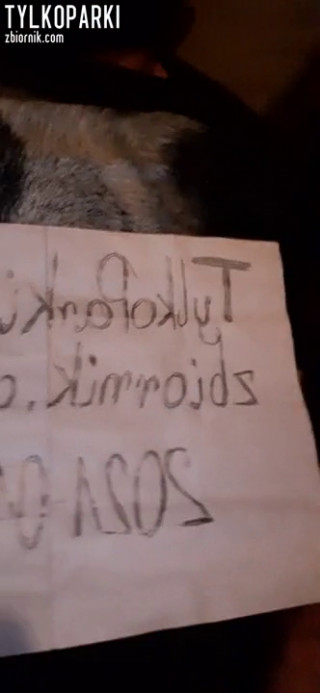 TYLKOPARKI
zbiornik.com
TylkoParki
zbiornik.c
2021 0